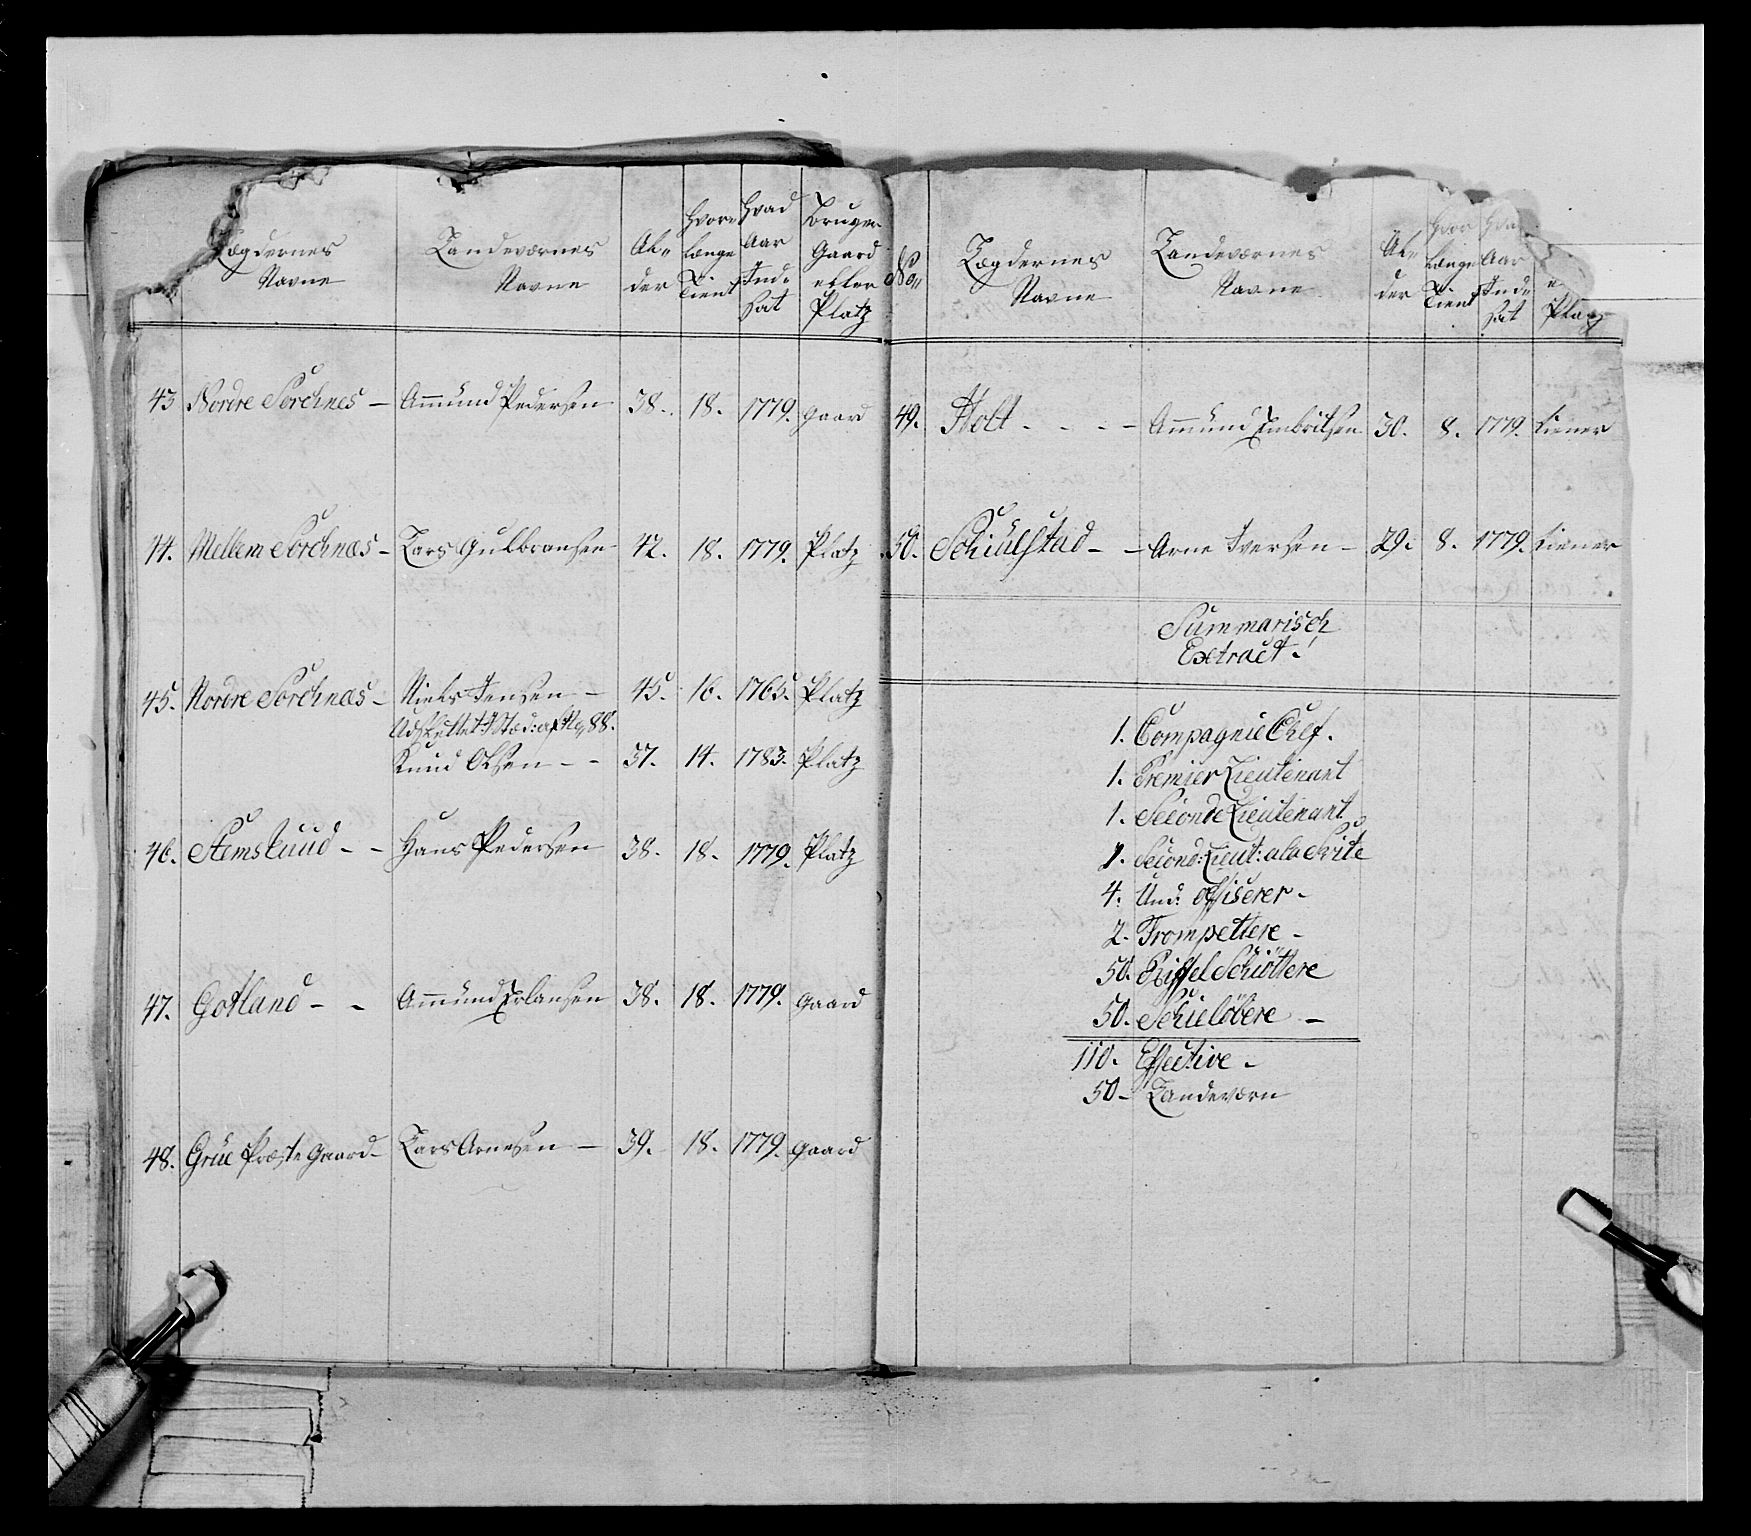 Lægdernes Navne
Landeværnes Navne
Al„ der
Hvor længe Tient
Hvad Aar Inde sat
Bruger Gaard eller Platz
43 Nordre Sorchnes – Ammünd Pedersen 38. 18. 1779. Gaard
44. Mellem Sorchnæs – Lars Gulbransen 42. 18. 1779. Platz
45. Nordre Sorchnæs – Niels Jensen – 45. 16. 1765. Platz
Udskuttet: I Stæd: af No 88.
Knud Olsen – – 37. 14. 1783. Platz
46. – – Hans Pedersen 38. 18. 1779. Platz
47. Gotland – – Ammünd Erlansen 38. 18. 1779. Gaard
48. Grüe Præste Gaard – Lars Arnesen – 39. 18. 1779. Gaard
No„
Lægdernes Navne
Landeværnes Navne
Al„ der
Hvor længe Tient
Hva Aar Inde sat
Platz
49. Holt - - - - Ammünd Embritsen 30. 8. 1779. tiener
50. Schiülstad – – Arne Iversen – 29. 8. 1779. tiener
Summarisch
Extract.
1. Compagnie Chef.
1. Premier Lieutenant
1. Seconde Lieutenant
1. Second: Lieut: ala Svite
4. Und: offiserer –
2. Trompettere –
50. Riffel Schüttere
50. Schieløbere –
110. Effective –
50 – Landeværn